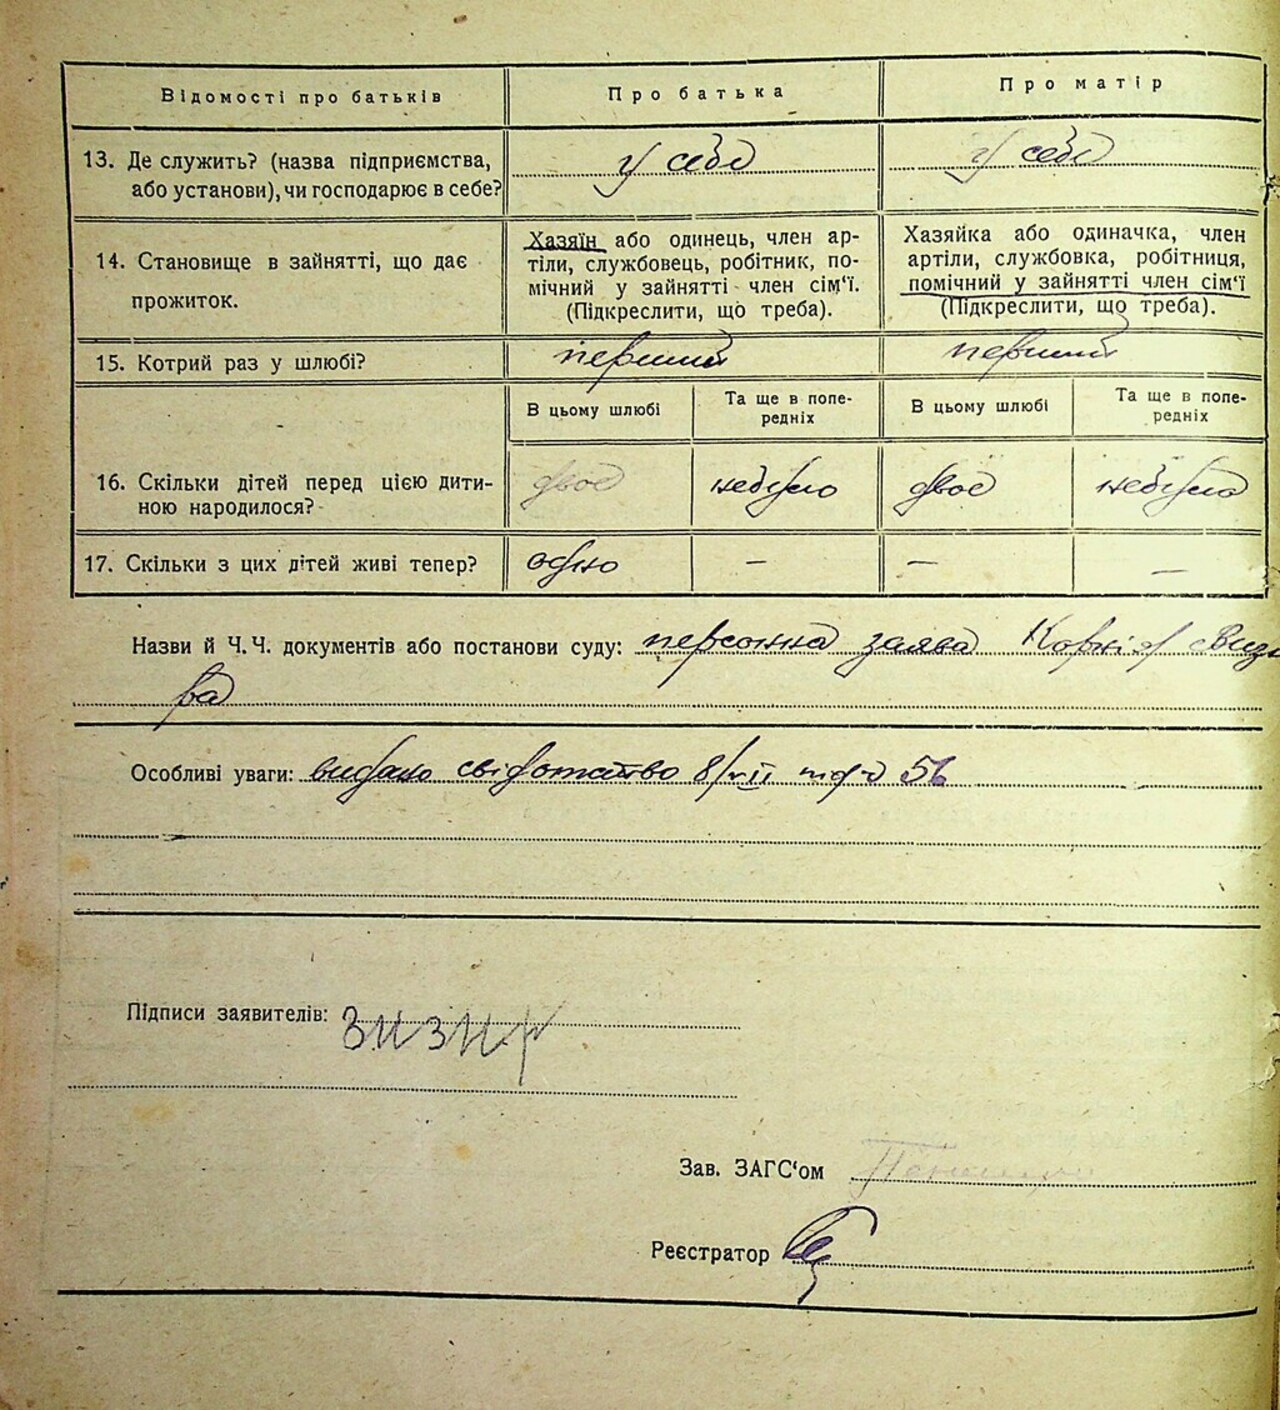 Відомості про батьків Про батька Про матір
13. Де служить? (назва підприємства, у себе у себе
або установи), чи господарює в себе?
Хазяїн або одинець, член ар- Хазяйка або одиначка, член
14. Становище в зайнятті, що дає тіли, службовець, робітник, по- артіли, службовка, робітниця,
прожиток. мічний у зайнятті член сім'ї. помічний у зайнятті член сім'ї
(Підкреслити, що треба). (Підкреслити, що треба).
15. Котрий раз у шлюбі? перший перший
В цьому шлюбі Та ще в попе- В цьому шлюбі Та ще в попе-
редніх редніх
16. Скільки дітей перед цією дити- двоє небуло двоє небуло
ною народилося?
17. Скільки з цих дітей живі тепер? одно — — —
Назви й Ч.Ч. документів або постанови суду: персонна заява
Особливі уваги: видано свідотство 8/VII 56
Підписи заявителів:
Зав. ЗАГС'ом
Реєстратор